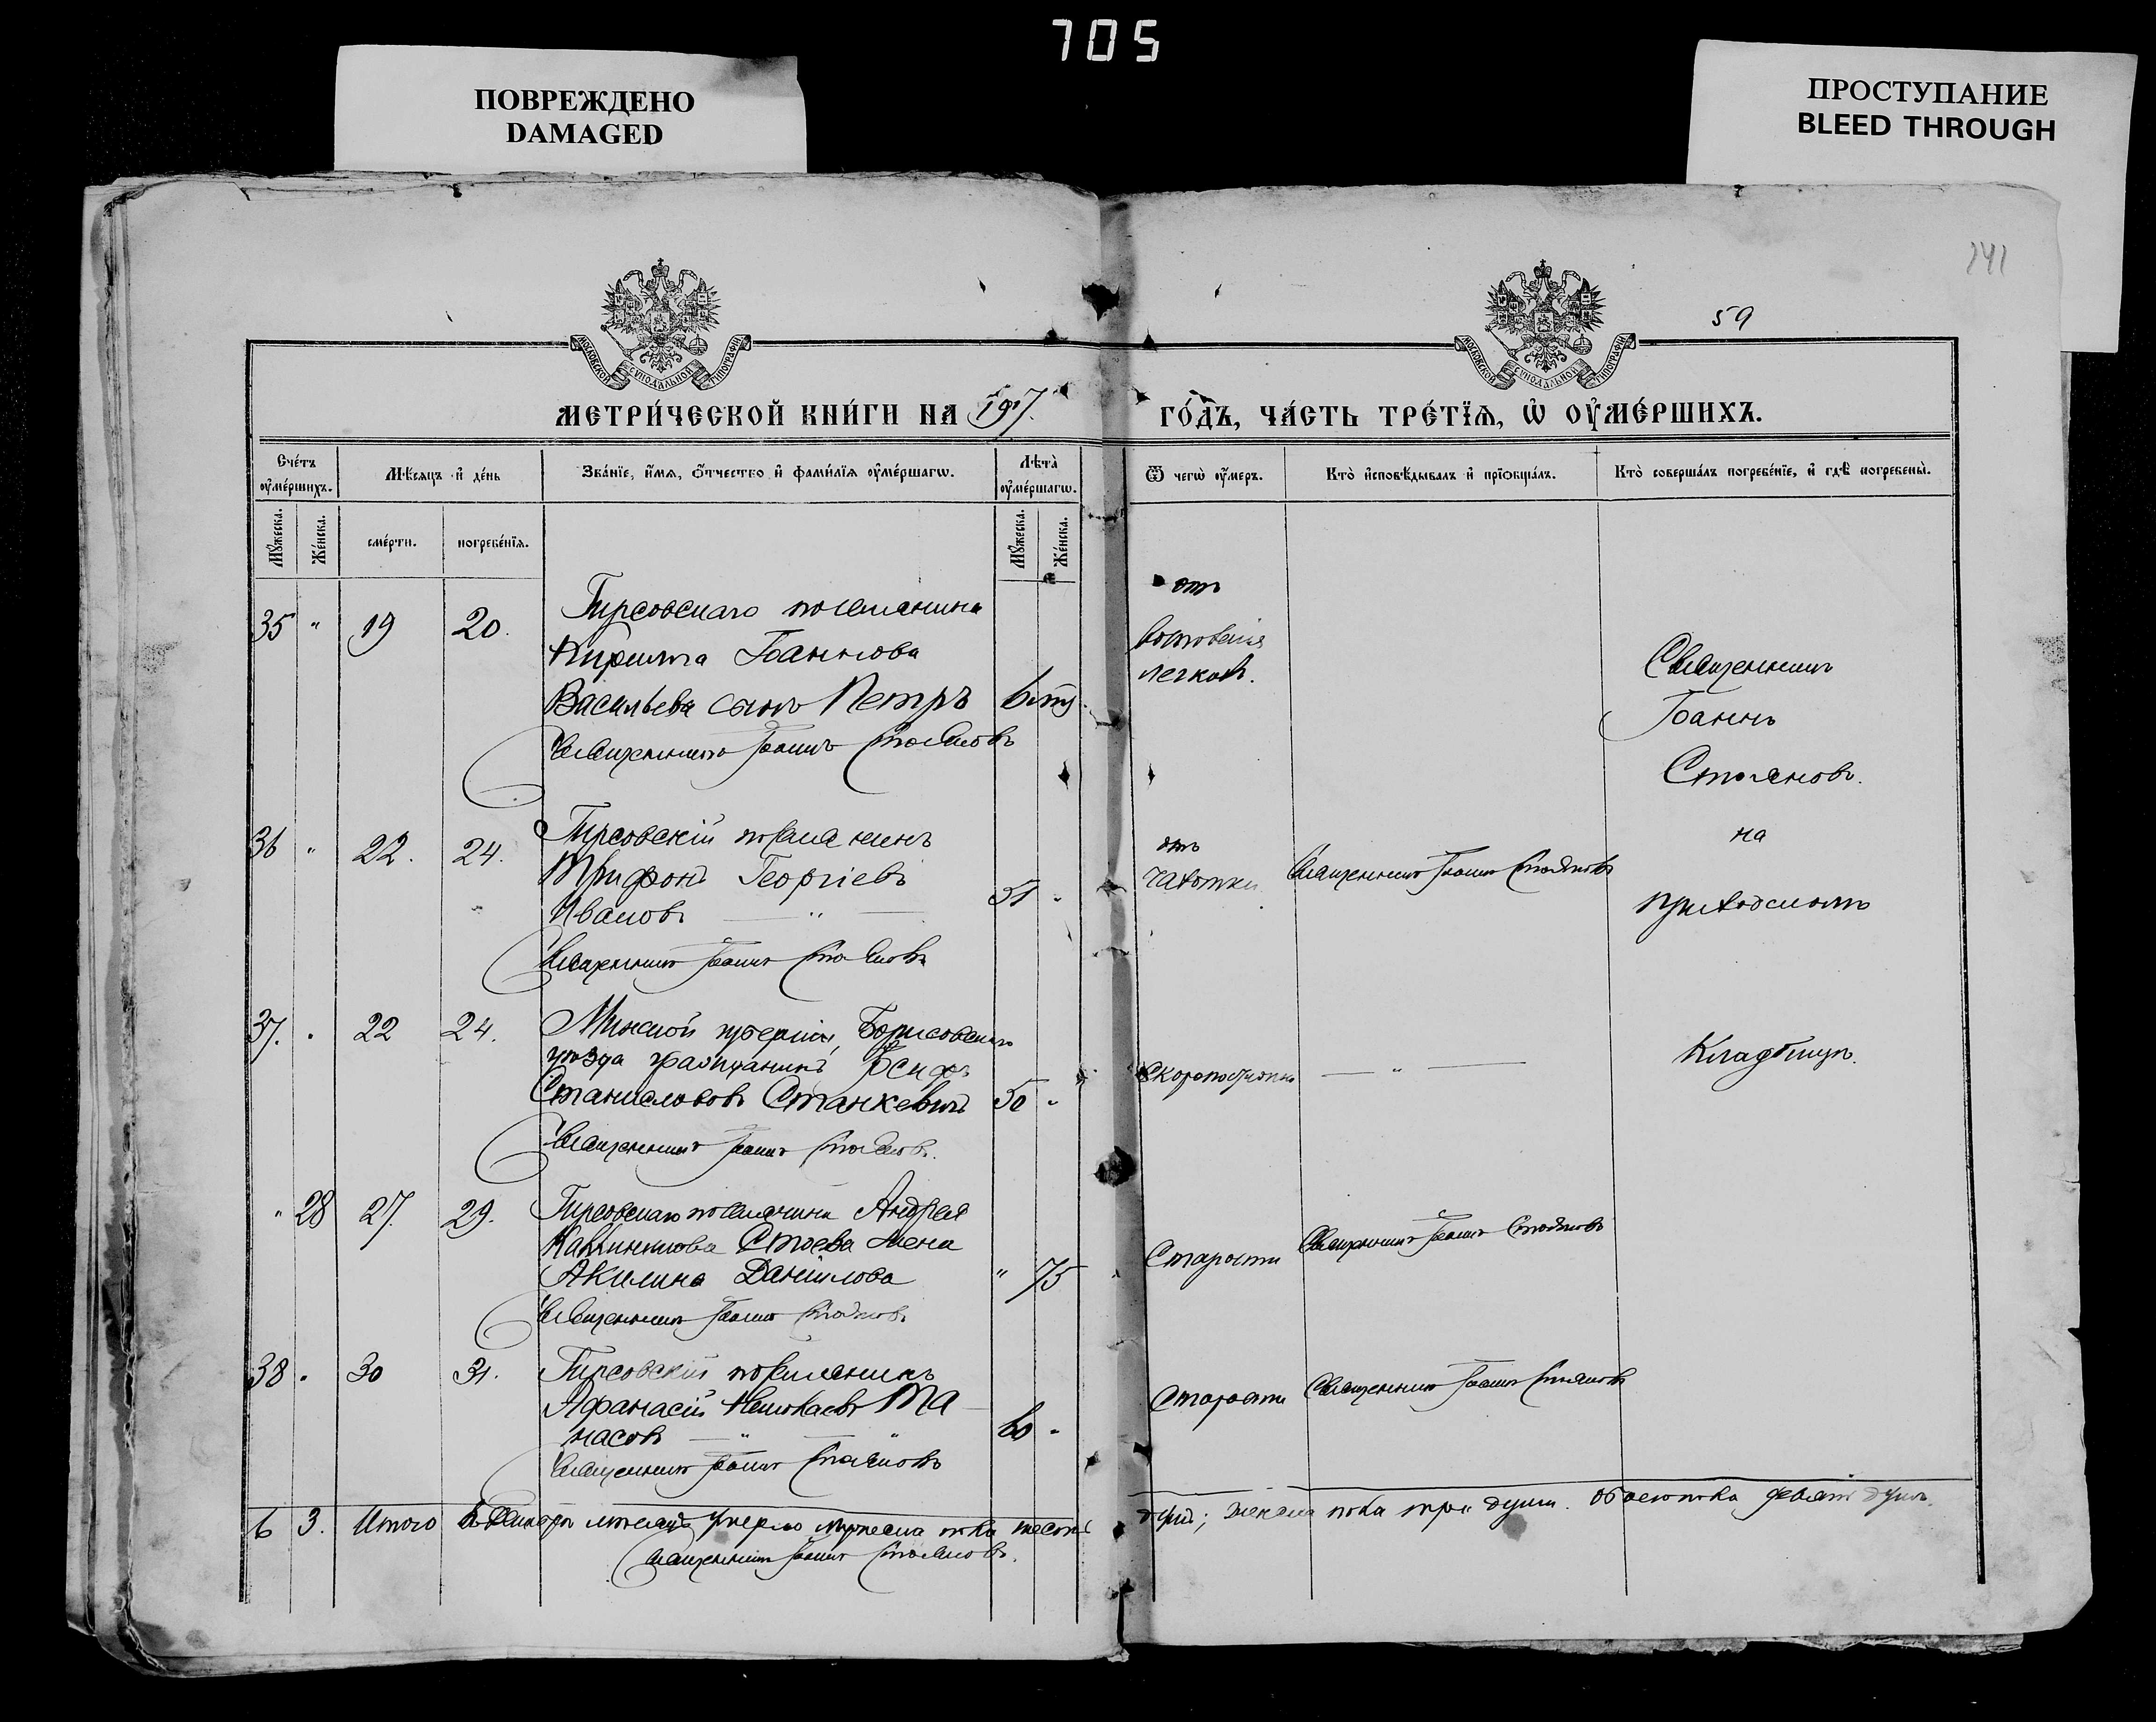 705
ПОВРЕЖДЕНО
DAMAGED
ПРОСТУПАНИЕ
BLEED THROUGH
141
59
МОСКОВСКОЙ СУНОДАЛЬНОЙ ТИПОГРАФІИ
МОСКОВСКОЙ СУНОДАЛЬНОЙ ТИПОГРАФІИ
МЕТРИ́ЧЕСКОЙ КНИ́ГИ НА 1917.
ГО́ДЪ, ЧА́СТЬ ТРЕ́ТЇѦ, Ѡ҆ ОУ҆МЕ́РШИХЪ.
Сче́тъ оу҆ме́ршихъ.
Мѣ́сяцъ и҆ де́нь
Зва́нїе, и҆́мѧ, ѻ҆́тчество и҆ фами́лїѧ оу҆ме́ршагѡ.
Лѣта̀ оу҆ме́ршагѡ.
Ѿ чегѡ̀ оу҆́меръ.
Кто̀ и҆сповѣ́дывалъ и҆ прїѻбща́лъ.
Кто̀ соверша́лъ погребе́нїе, и҆ гдѣ̀ погребены̀.
Мꙋ́жеска.
Же́нска.
сме́рти.
погребе́нїѧ.
Мꙋ́жеска.
Же́нска.
35 " 19 20.
Тирсовскаго поселянина
Кирилла Іоаннова
Васильева сынъ Петръ
Священникъ Іоаннъ Стояновъ
отъ
легкихъ.
Священникъ
Іоаннъ
Стояновъ.
на
приходскомъ
Кладбищѣ.
36 " 22. 24.
Тирсовскій поселянинъ
Трифонъ Георгіевъ
Ивановъ — " —
51 "
Священникъ Іоаннъ Стояновъ
отъ
чахотки
Священникъ Іоаннъ Стояновъ
37. " 22 24.
Минской губерніи, Борисовскаго
уѣзда гражданинъ Іосифъ
Станиславовъ Станкевичъ 50 "
Священникъ Іоаннъ Стояновъ.
Скоропостижно — " —
" 28 27. 29.
Тирсовскаго поселянина Андрея
Стоева жена
Акилина Даніилова " 75
Священникъ Іоаннъ Стояновъ
Старости
Священникъ Іоаннъ Стояновъ
38 " 30 31.
Тирсовскій поселянинъ
Афанасій Николаевъ Та-
насовъ — " — " 60 "
Священникъ Іоаннъ Стояновъ
Старости
Священникъ Іоаннъ Стояновъ
6 3. Итого въ мѣсяцѣ умерло мужеска пола шесть душъ; женска пола три души. Обоего пола девять душъ.
Священникъ Іоаннъ Стояновъ.